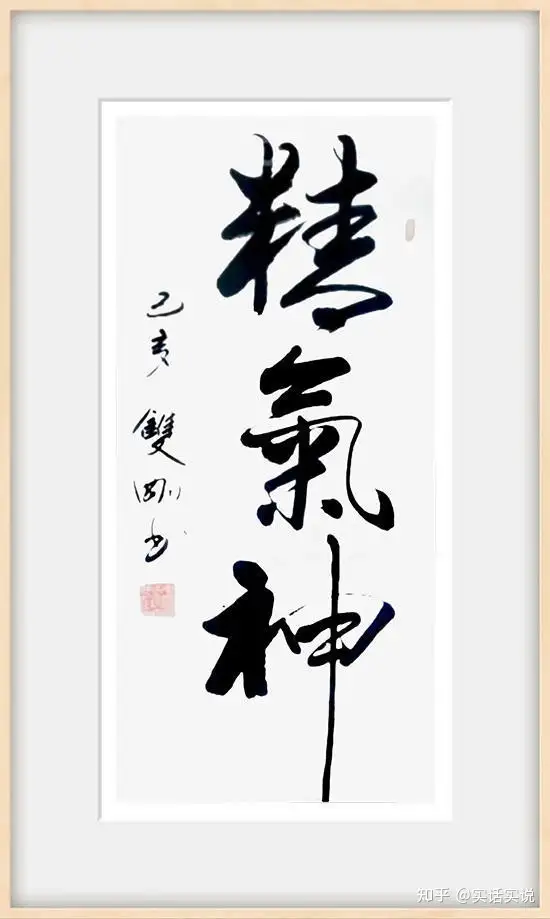 精氣神
己亥 雙剛書
知乎 @实话实说